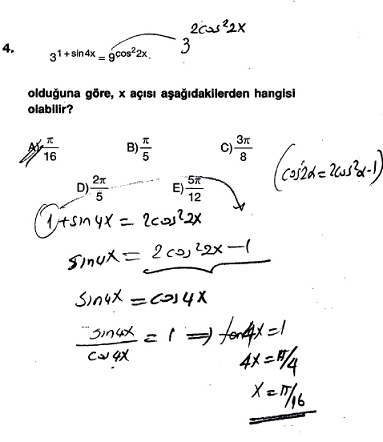 3^{2cos²2x}
4.
3^{1 + sin4x} = 9^{cos²2x}
olduğuna göre, x açısı aşağıdakilerden hangisi
olabilir?
A) π/16 B) π/5 C) 3π/8
D) 2π/5 E) 5π/12
(cos2α = 2cos²α-1)
1 + sin4x = 2cos²2x
sin4x = 2cos²2x - 1
sin4x = cos4x
sin4x/cos4x = 1 ⇒ tan4x = 1
4x = π/4
x = π/16